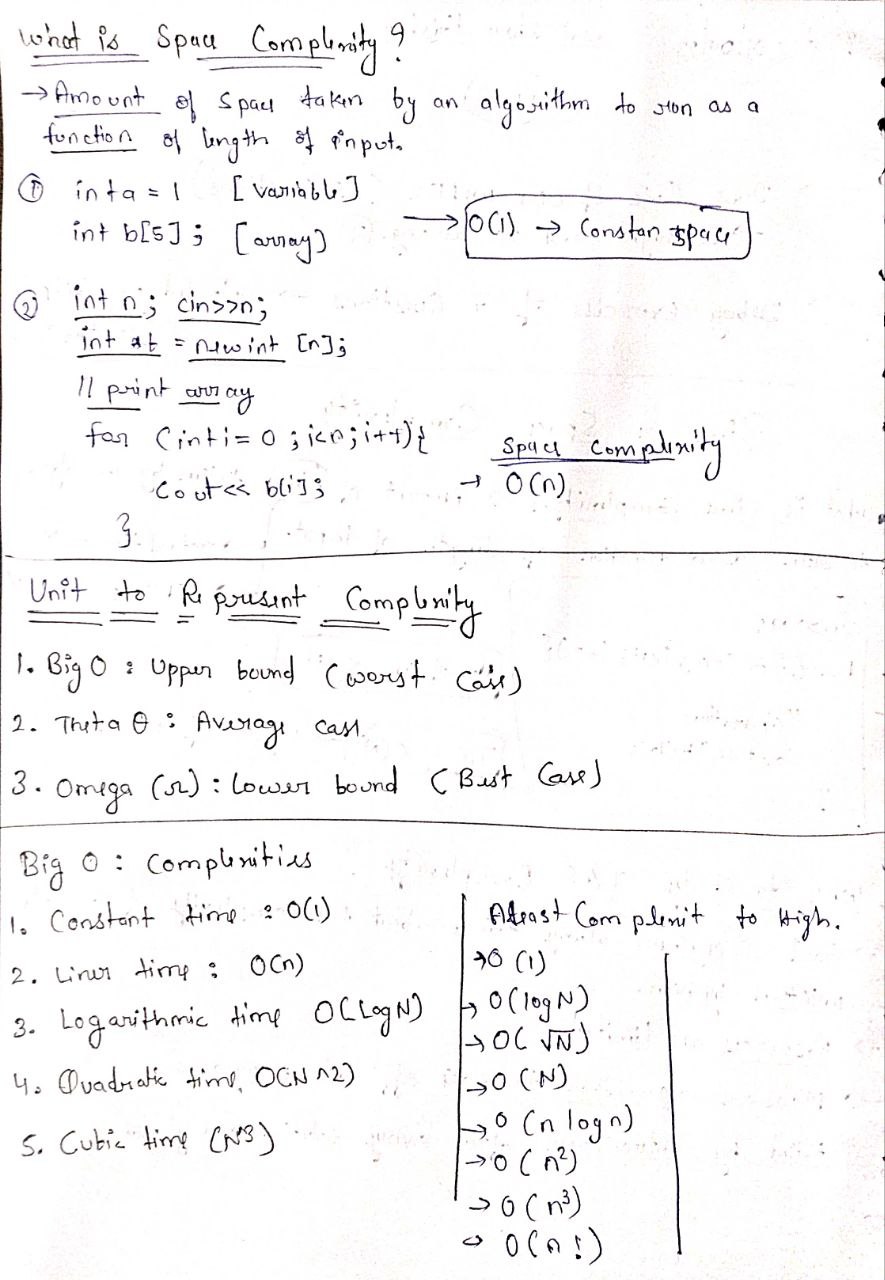 What is Space Complexity?
→ Amount of space taken by an algorithm to run as a
function of length of input.
① int a = 1 [variable]
int b[5]; [array]
→ O(1) → Constan space
② int n; cin>>n;
int *b = new int [n];
// print array
for (int i = 0; i<n; i++){
cout<< b[i];
}
Space Complexity
→ O(n)
Unit to Represent Complexity
1. Big O : Upper bound (worst case)
2. Theta θ : Average case
3. Omega (Ω) : Lower bound (Best Case)
Big O : Complexities
1. Constant time : O(1)
2. Liner time : O(n)
3. Logarithmic time O(LogN)
4. Quadratic time, O(N^2)
5. Cubic time (N^3)
Atleast Complexit to High.
→ O(1)
→ O(logN)
→ O(√N)
→ O(N)
→ O(n logn)
→ O(n²)
→ O(n³)
→ O(n!)